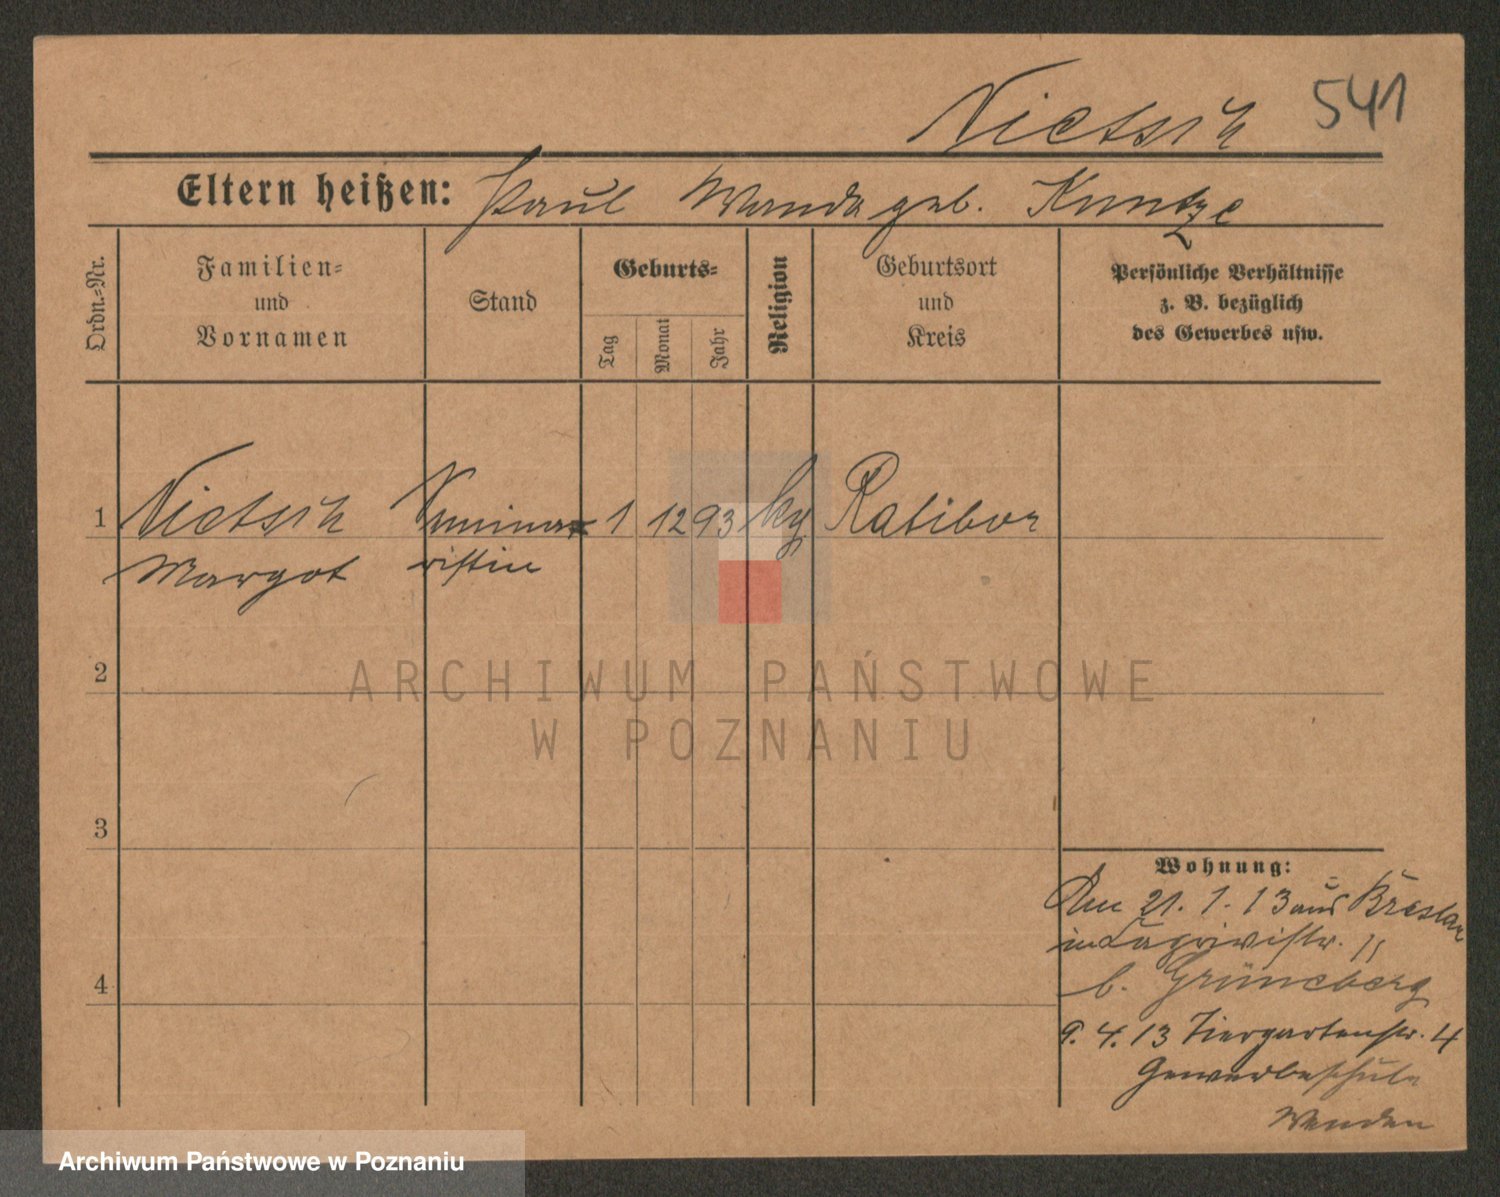 Nietsch 541
Eltern heißen: Paul Wanda geb. Kuntze
Ordn.=Nr.
Familien=
und
Vornamen
Stand
Geburts=
Tag
Monat
Jahr
Religion
Geburtsort
und
Kreis
Persönliche Verhältnisse
z. B. bezüglich
des Gewerbes usw.
1 Nietsch Semina- 1 12 93 kg Ratibor
Margot ristin
2
3
4
Wohnung:
Am 21. 1. 13 aus Breslau
in Caprivistr. 11
b. Grüneberg
9. 4. 13 Tiergartenstr. 4
Gewerbeschule
ARCHIWUM PAŃSTWOWE
W POZNANIU
Archiwum Państwowe w Poznaniu